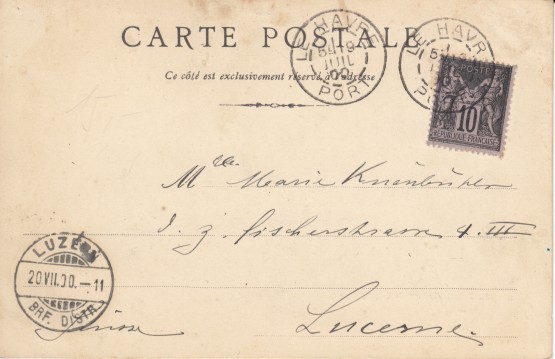 CARTE POSTALE
Ce côté est exclusivement réservé à l'adresse
LE HAVRE
5E 19
JUIL
00
PORT
LE HAVR
POSTE
10
REPUBLIQUE FRANÇAISE
Mlle Marie
4 III
LUZERN
20.VII.00.-11
BRF. DISTR.
Lucerne.
Suisse